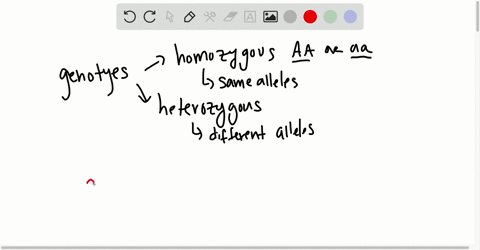 homozygous AA or aa
genotyes
same alleles
heterozygous
different alleles